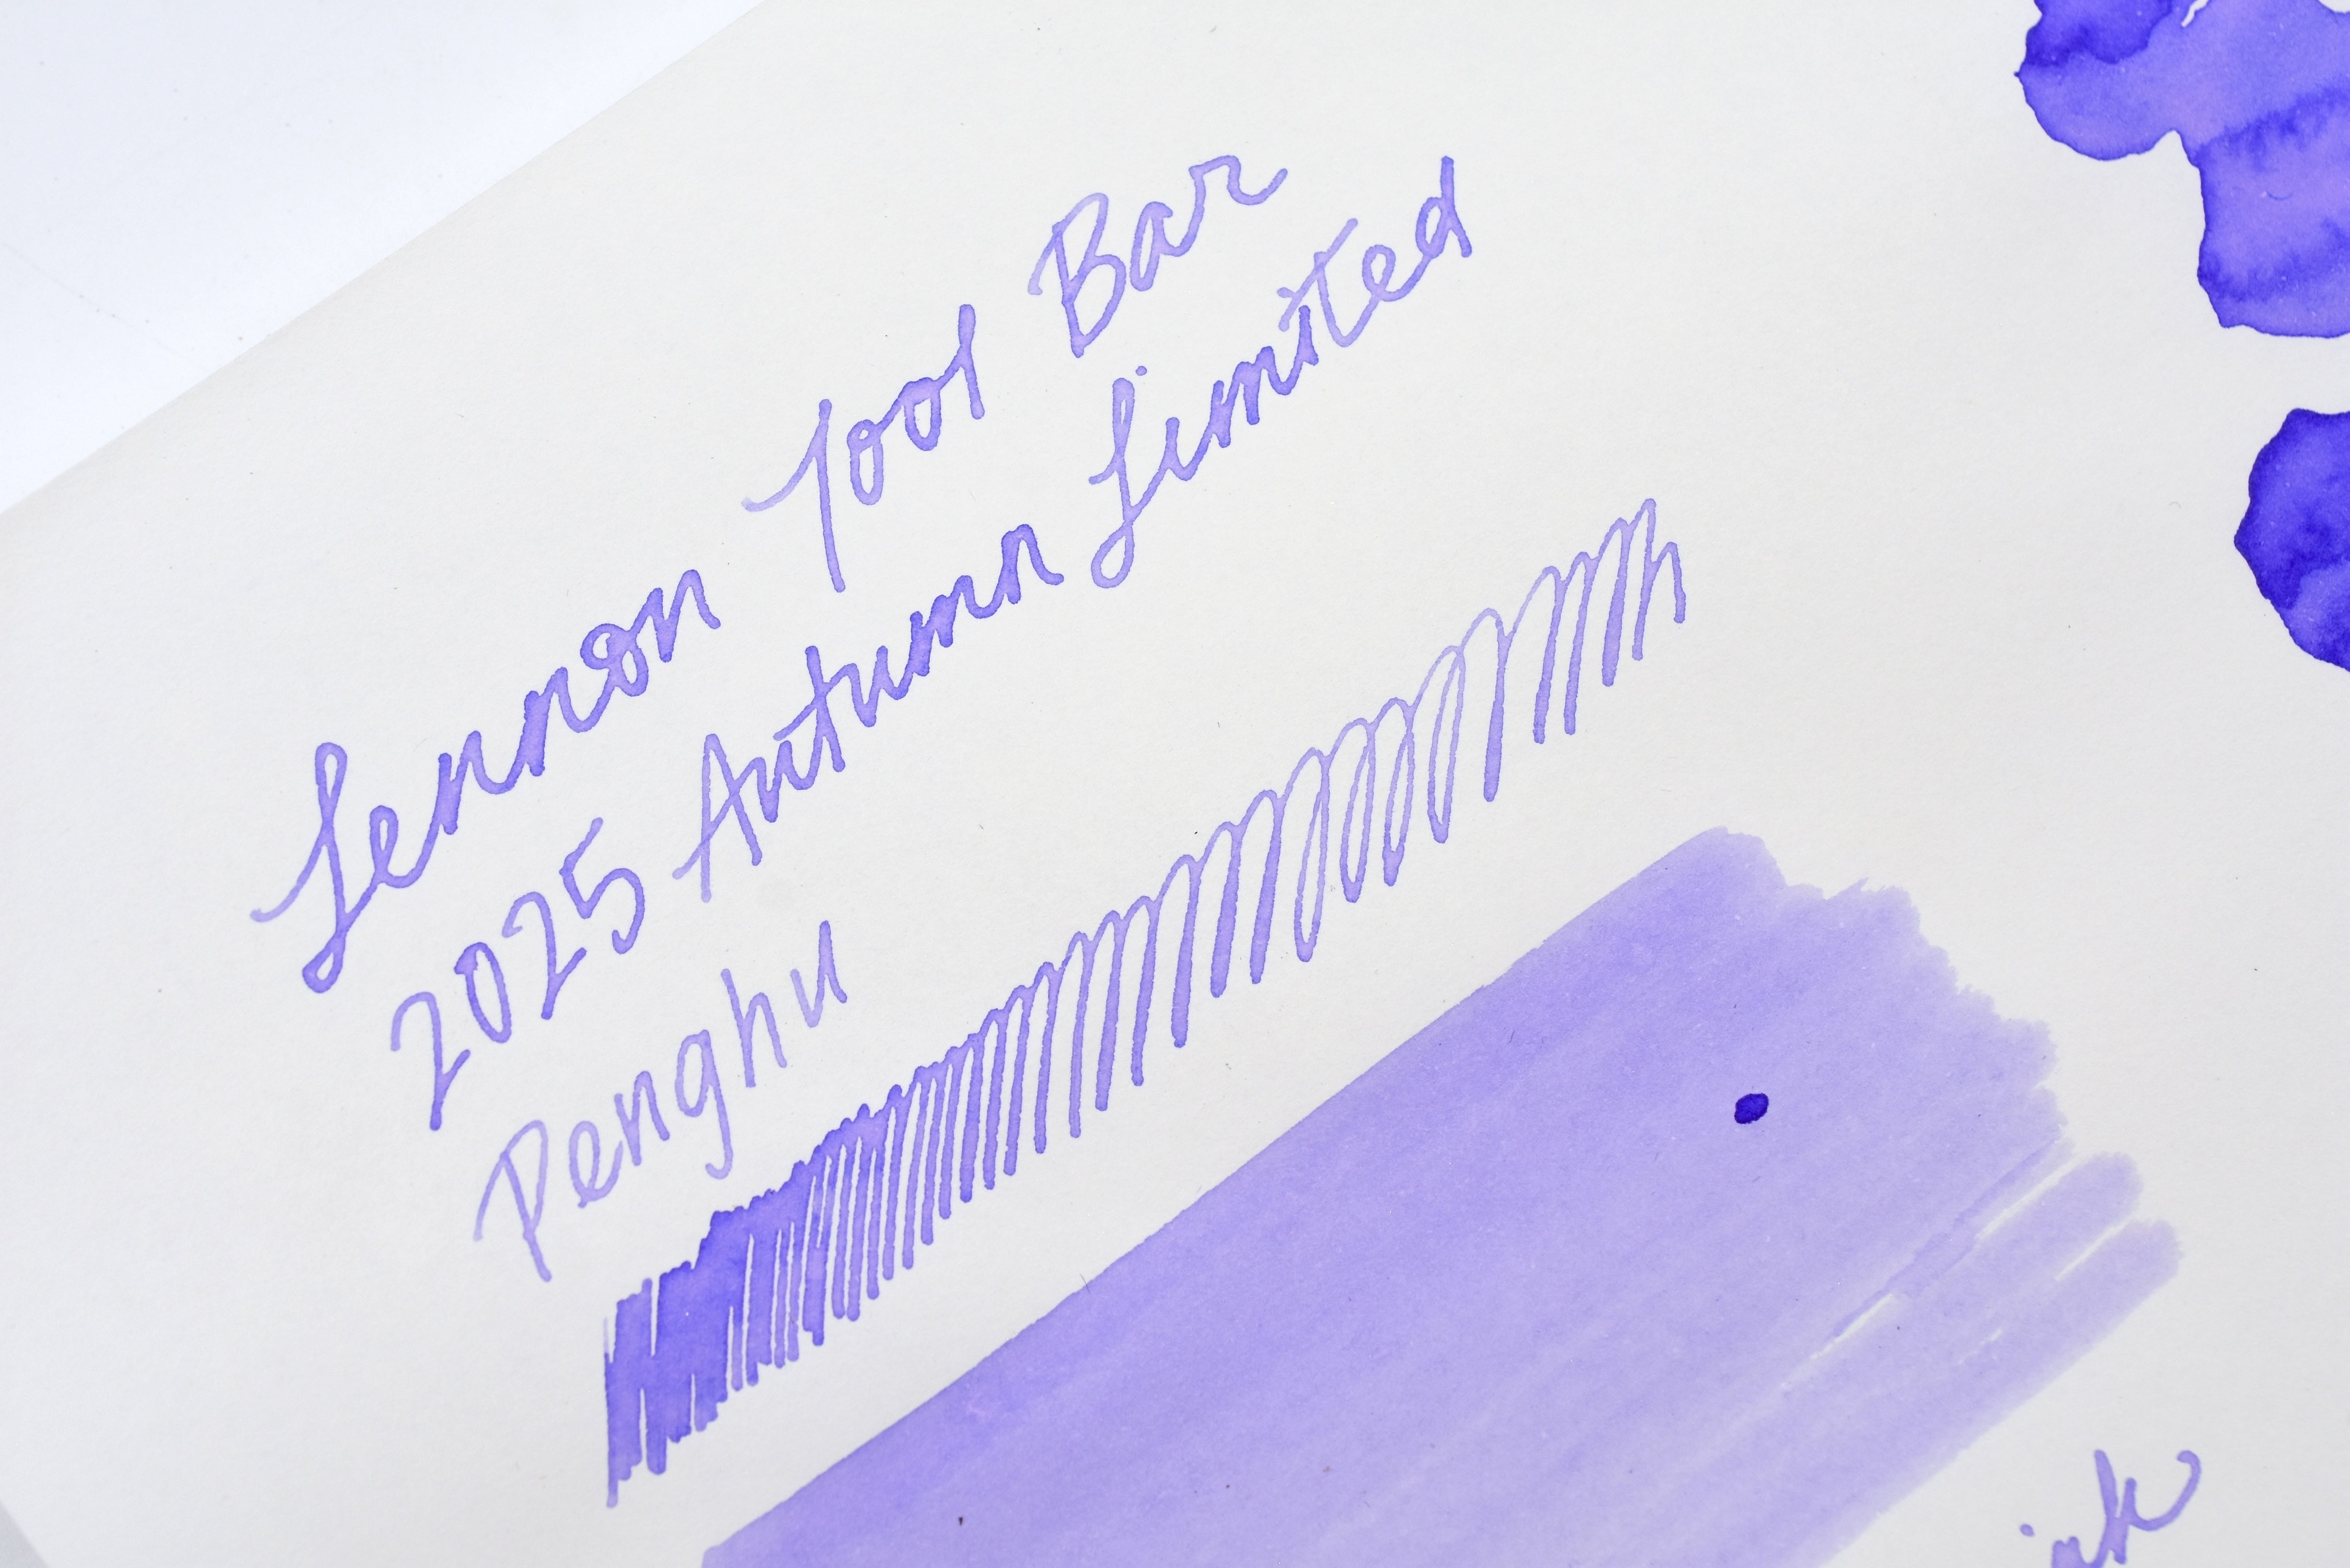 Lennon Tool Bar
2025 Autumn Limited
Penghu
ink